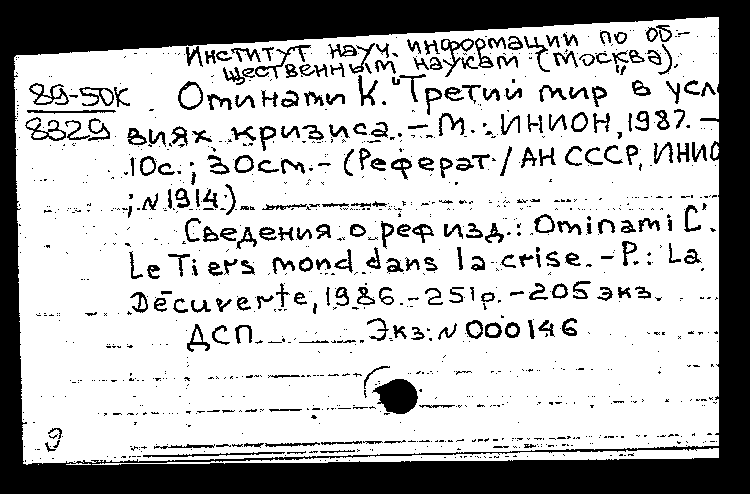 Институт науч. информации по об-
щественным наукам (Москва).
89-50К
8329
Оминами К. "Третий мир" в усло
виях кризиса. - М.: ИНИОН, 1987. -
10с.; 30см. - (Реферат / АН СССР, ИНИО
; N1914)
Сведения о реф изд.: Ominami C.
Le Tiers mond dans la crise. - P.: La
Décuverte, 1986. - 251p. - 205 экз.
ДСП Экз. N 000146